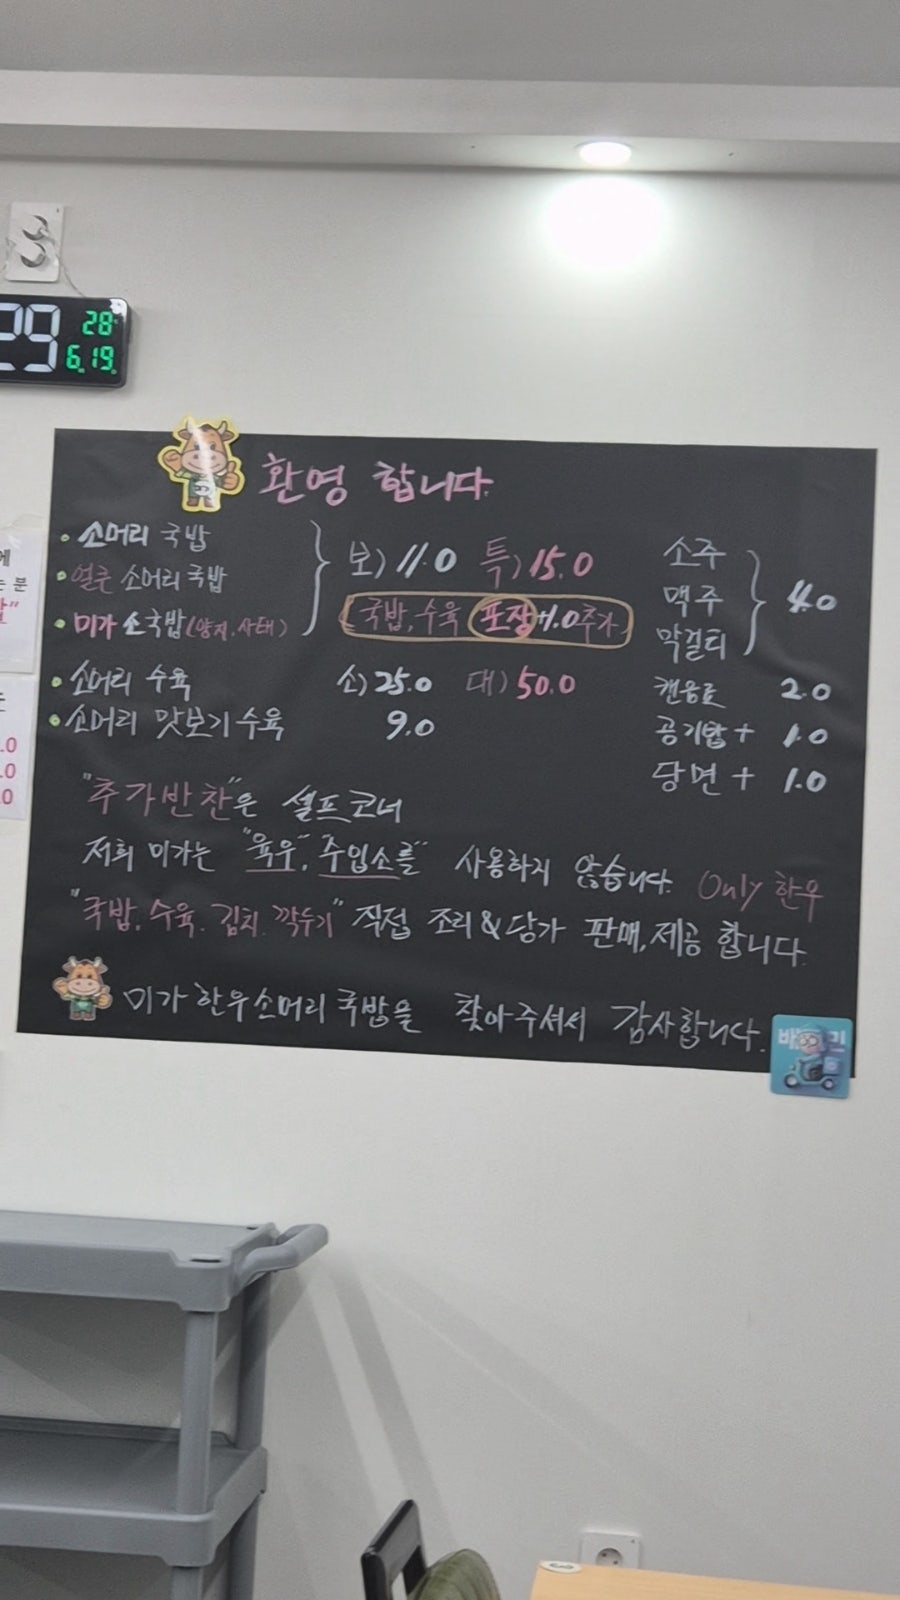 29 28
6.19.
환영 합니다.
• 소머리 국밥
• 얼큰 소머리 국밥
• 미가 소국밥(양지.사태)
보) 11.0 특) 15.0
국밥, 수육 포장+1.0추가
• 소머리 수육 소) 25.0 대) 50.0
• 소머리 맛보기 수육 9.0
소주
맥주
막걸리
4.0
캔음료 2.0
공기밥 + 1.0
당면 + 1.0
"추가반찬"은 셀프코너
저희 미가는 "육우", "수입소를" 사용하지 않습니다. Only 한우
"국밥, 수육. 김치. 깍두기" 직접 조리 & 당가 판매, 제공 합니다.
미가 한우소머리 국밥을 찾아주셔서 감사합니다.
에
는 분
.0
.0
.0